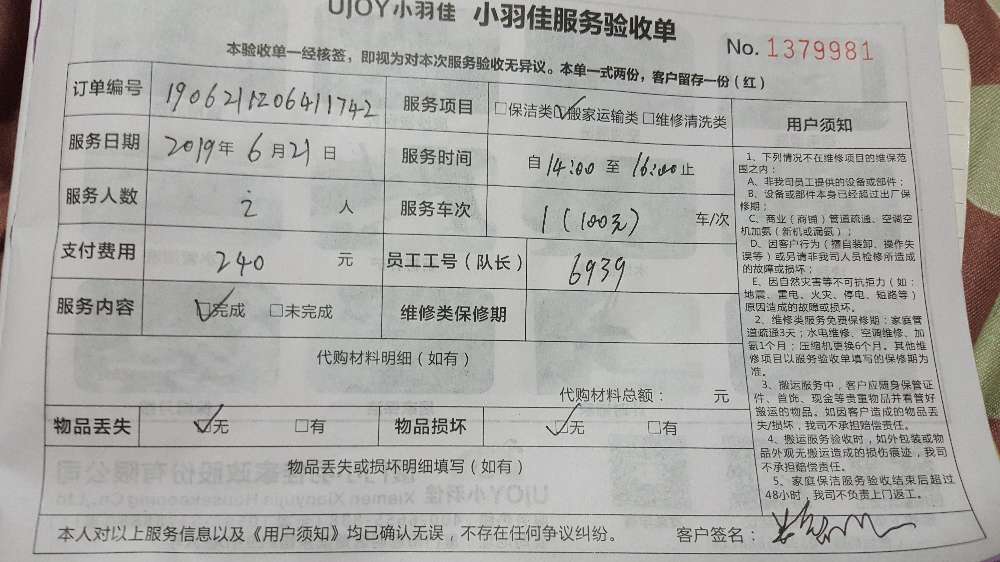 UJOY小羽佳 小羽佳服务验收单
No. 1379981
本验收单一经核签，即视为对本次服务验收无异议。本单一式两份，客户留存一份（红）
订单编号 1906211206411742 服务项目 □保洁类 ☑搬家运输类 □维修清洗类
服务日期 2019年6月21日 服务时间 自14:00至16:00止
服务人数 2 人 服务车次 1（100元） 车/次
支付费用 240 元 员工工号（队长） 6939
服务内容 ☑完成 □未完成 维修类保修期
代购材料明细（如有）
代购材料总额： 元
物品丢失 ☑无 □有 物品损坏 ☑无 □有
物品丢失或损坏明细填写（如有）
本人对以上服务信息以及《用户须知》均已确认无误，不存在任何争议纠纷。 客户签名：
用户须知
1、下列情况不在维修项目的维保范
围之内：
A、非我司员工提供的设备或部件；
B、设备或部件本身已经超过出厂保
修期；
C、商业（商铺）管道疏通、空调空
机加氨（新机或漏氨）；
D、因客户行为（擅自装卸、操作失
误等）或另请非我司人员检修所造成
的故障或损坏；
E、因自然灾害等不可抗拒力（如：
地震、雷电、火灾、停电、短路等）
原因造成的故障或损坏。
2、维修类服务免费保修期：家庭管
道疏通3天；水电维修、空调维修、加
氨1个月；压缩机更换6个月。其他维
修项目以服务验收单填写的保修期为
准。
3、搬运服务中，客户应随身保管证
件、首饰、现金等贵重物品并看管好
搬运的物品。如因客户造成的物品丢
失/损坏，我司不承担赔偿责任。
4、搬运服务验收时，如外包装或物
品外观无搬运造成的损伤痕迹，我司
不承担赔偿责任。
5、家庭保洁服务验收结束后超过
48小时，我司不负责上门返工。